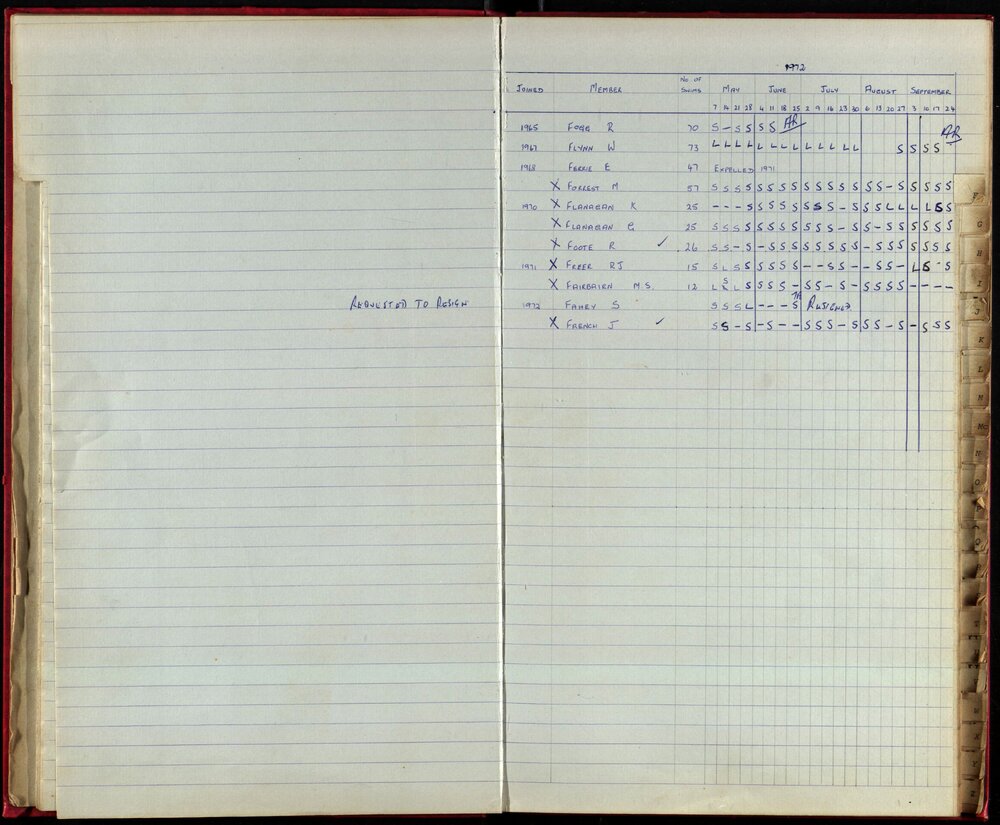 1972
JOINED MEMBER No OF SWIMS MAY JUNE JULY AUGUST SEPTEMBER
7 14 21 28 4 11 18 25 2 9 16 23 30 6 13 20 27 3 10 17 24
1965 FOGG R 70 S - S S S S AR
1967 FLYNN W 73 L L L L L L L L L L L L L S S S S AR
1968 FERRIE E 47 EXPELLED 1971
X FORREST M 57 S S S S S S S S S S S S S S S - S S S S S
1970 X FLANAGAN K 25 - - - S S S S S S S S - S S S L L L L S S
X FLANAGAN G 25 S S S S S S S S S S S - S S - S S S S S S
X FOOTE R ✓ 26 S S - S - S S S S S S S S - S S S S S S S
1971 X FREER RJ 15 S L S S S S S S - - S S - - S S - L S - S
X FAIRBAIRN M.S. 12 L S L S S S S - S S - S - S S S S - - - -
REQUESTED TO RESIGN 1972 FAHEY S S S S L - - - S RESIGNED
X FRENCH J ✓ S S - S - S - - S S S - S S S - S - S S S
F
G
H
I
J
K
L
M
Mc
N
O
Q
W
X
Y
Z